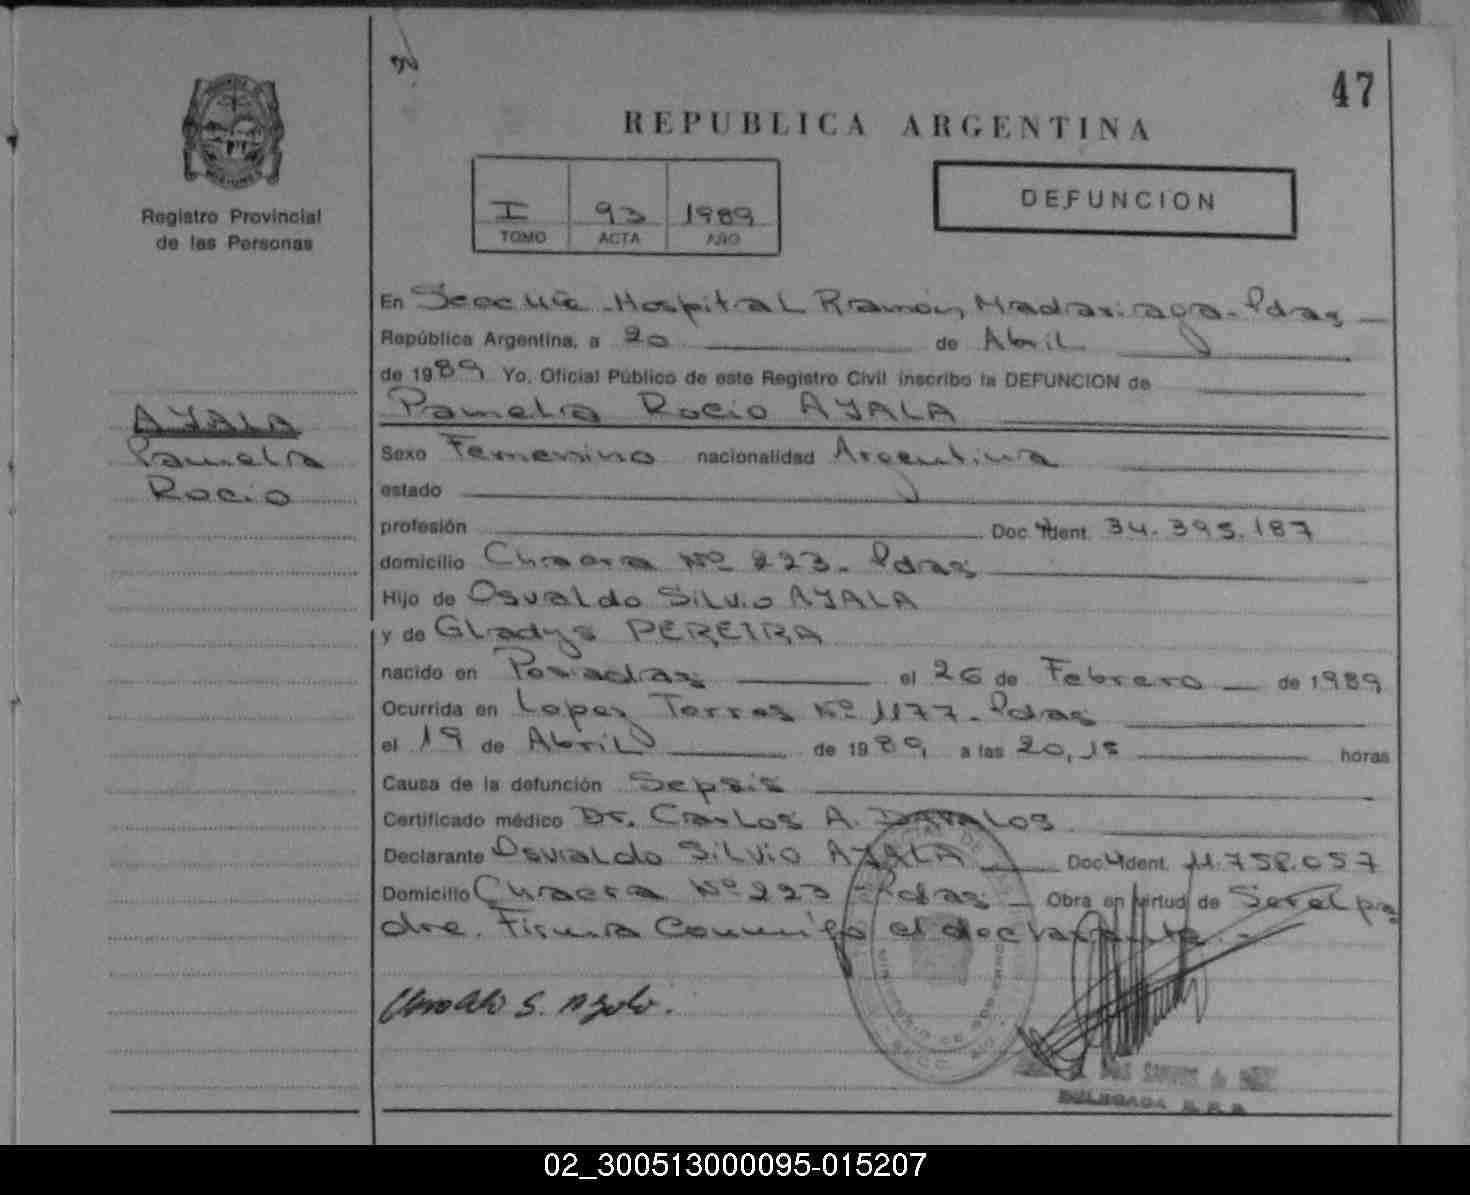 47
REPUBLICA ARGENTINA
I 93 1989
TOMO ACTA AÑO
DEFUNCION
Registro Provincial
de las Personas
AYALA
Pamela
Rocio
En Hospital Ramón Madariaga - Pdas
República Argentina, a 20 de Abril
de 1989 Yo, Oficial Público de este Registro Civil inscribo la DEFUNCION de
Pamela Rocio AYALA
Sexo Femenino nacionalidad Argentina
estado
profesión Doc. Ident. 34.395.187
domicilio Chacra Nº 223 - Pdas
Hijo de Osvaldo Silvio AYALA
y de Gladys PEREIRA
nacido en Posadas el 26 de Febrero de 1989
Ocurrida en Lopez Torres Nº 1177 - Pdas
el 19 de Abril de 1989 a las 20,15 horas
Causa de la defunción Sepsis
Certificado médico Dr. Carlos A. DAVALOS
Declarante Osvaldo Silvio AYALA Doc. Ident. 11.758.057
Domicilio Chacra Nº 223 - Pdas - Obra en virtud de Ser el pa
dre. Firma Conmigo el declarante.-
Osvaldo S. Ayala.
DOS SANTOS de
DELEGADA
02_300513000095-015207